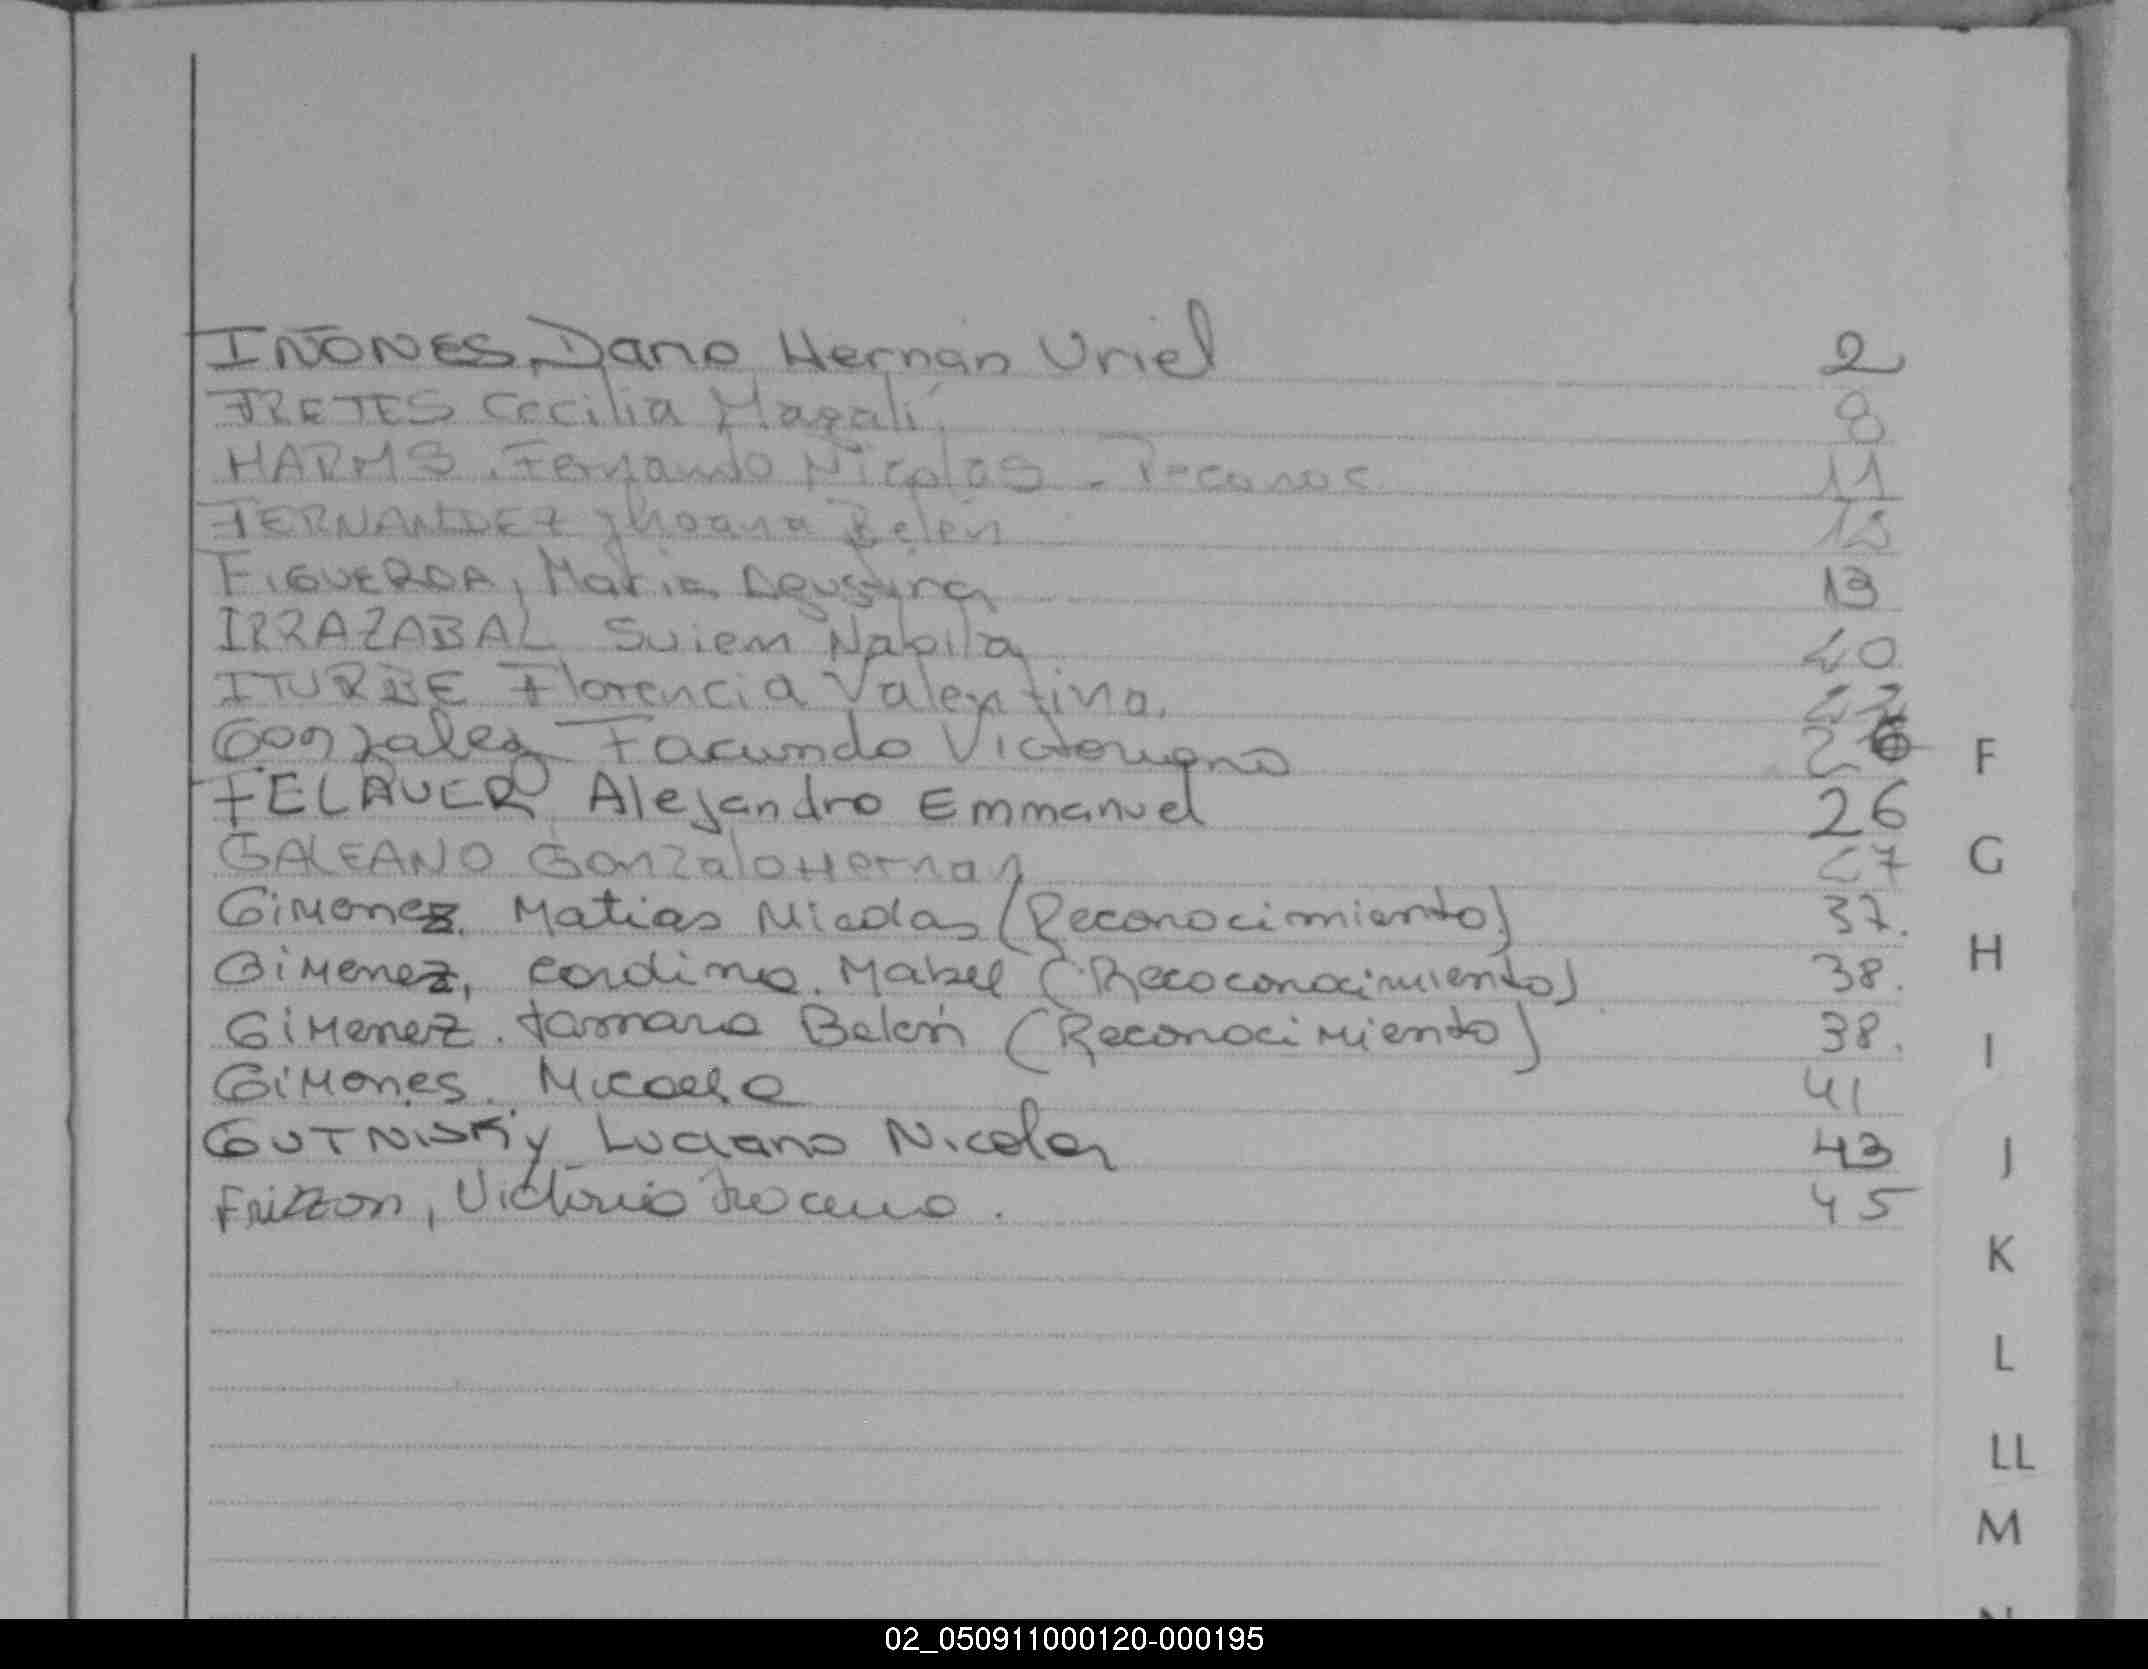 IÑONES Dario Hernán Uriel 2
FRETES Cecilia Magalí 8
HARMS Fernando Nicolas - 11
FERNANDEZ Jhoana Belén
FIGUEROA, Maria Agustina 13
IRRAZABAL Suiem Nabila
ITURBE Florencia Valentina.
Gonzalez Facundo Victoriano 26
FELAUER Alejandro Emmanuel 26
GALEANO Gonzalo Hernan 27
Gimenez Matias Nicolas (Reconocimiento) 37.
Gimenez, Mabel (Recoconocimiento) 38.
Gimenez. Tamara Belén (Reconocimiento) 38.
Gimones. Micaela 41
GUTNISKY Luciano Nicolas 43
Frizzon, Victorio 45
F
G
H
I
J
K
L
LL
M
02_050911000120-000195